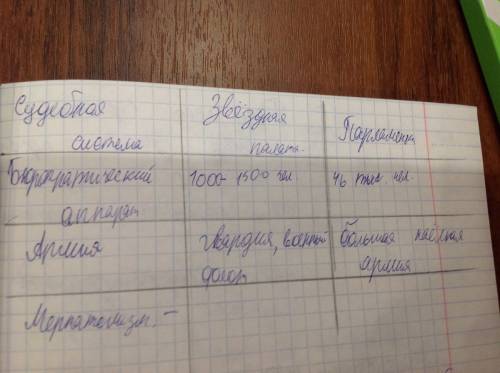 Судебная Звёздная Парламенты
система палата
Бюрократический 1000-1500 чел. 46 тыс. чел.
аппарат
Армия гвардия, военный большая наёмная
армия
Меркантилизм. -